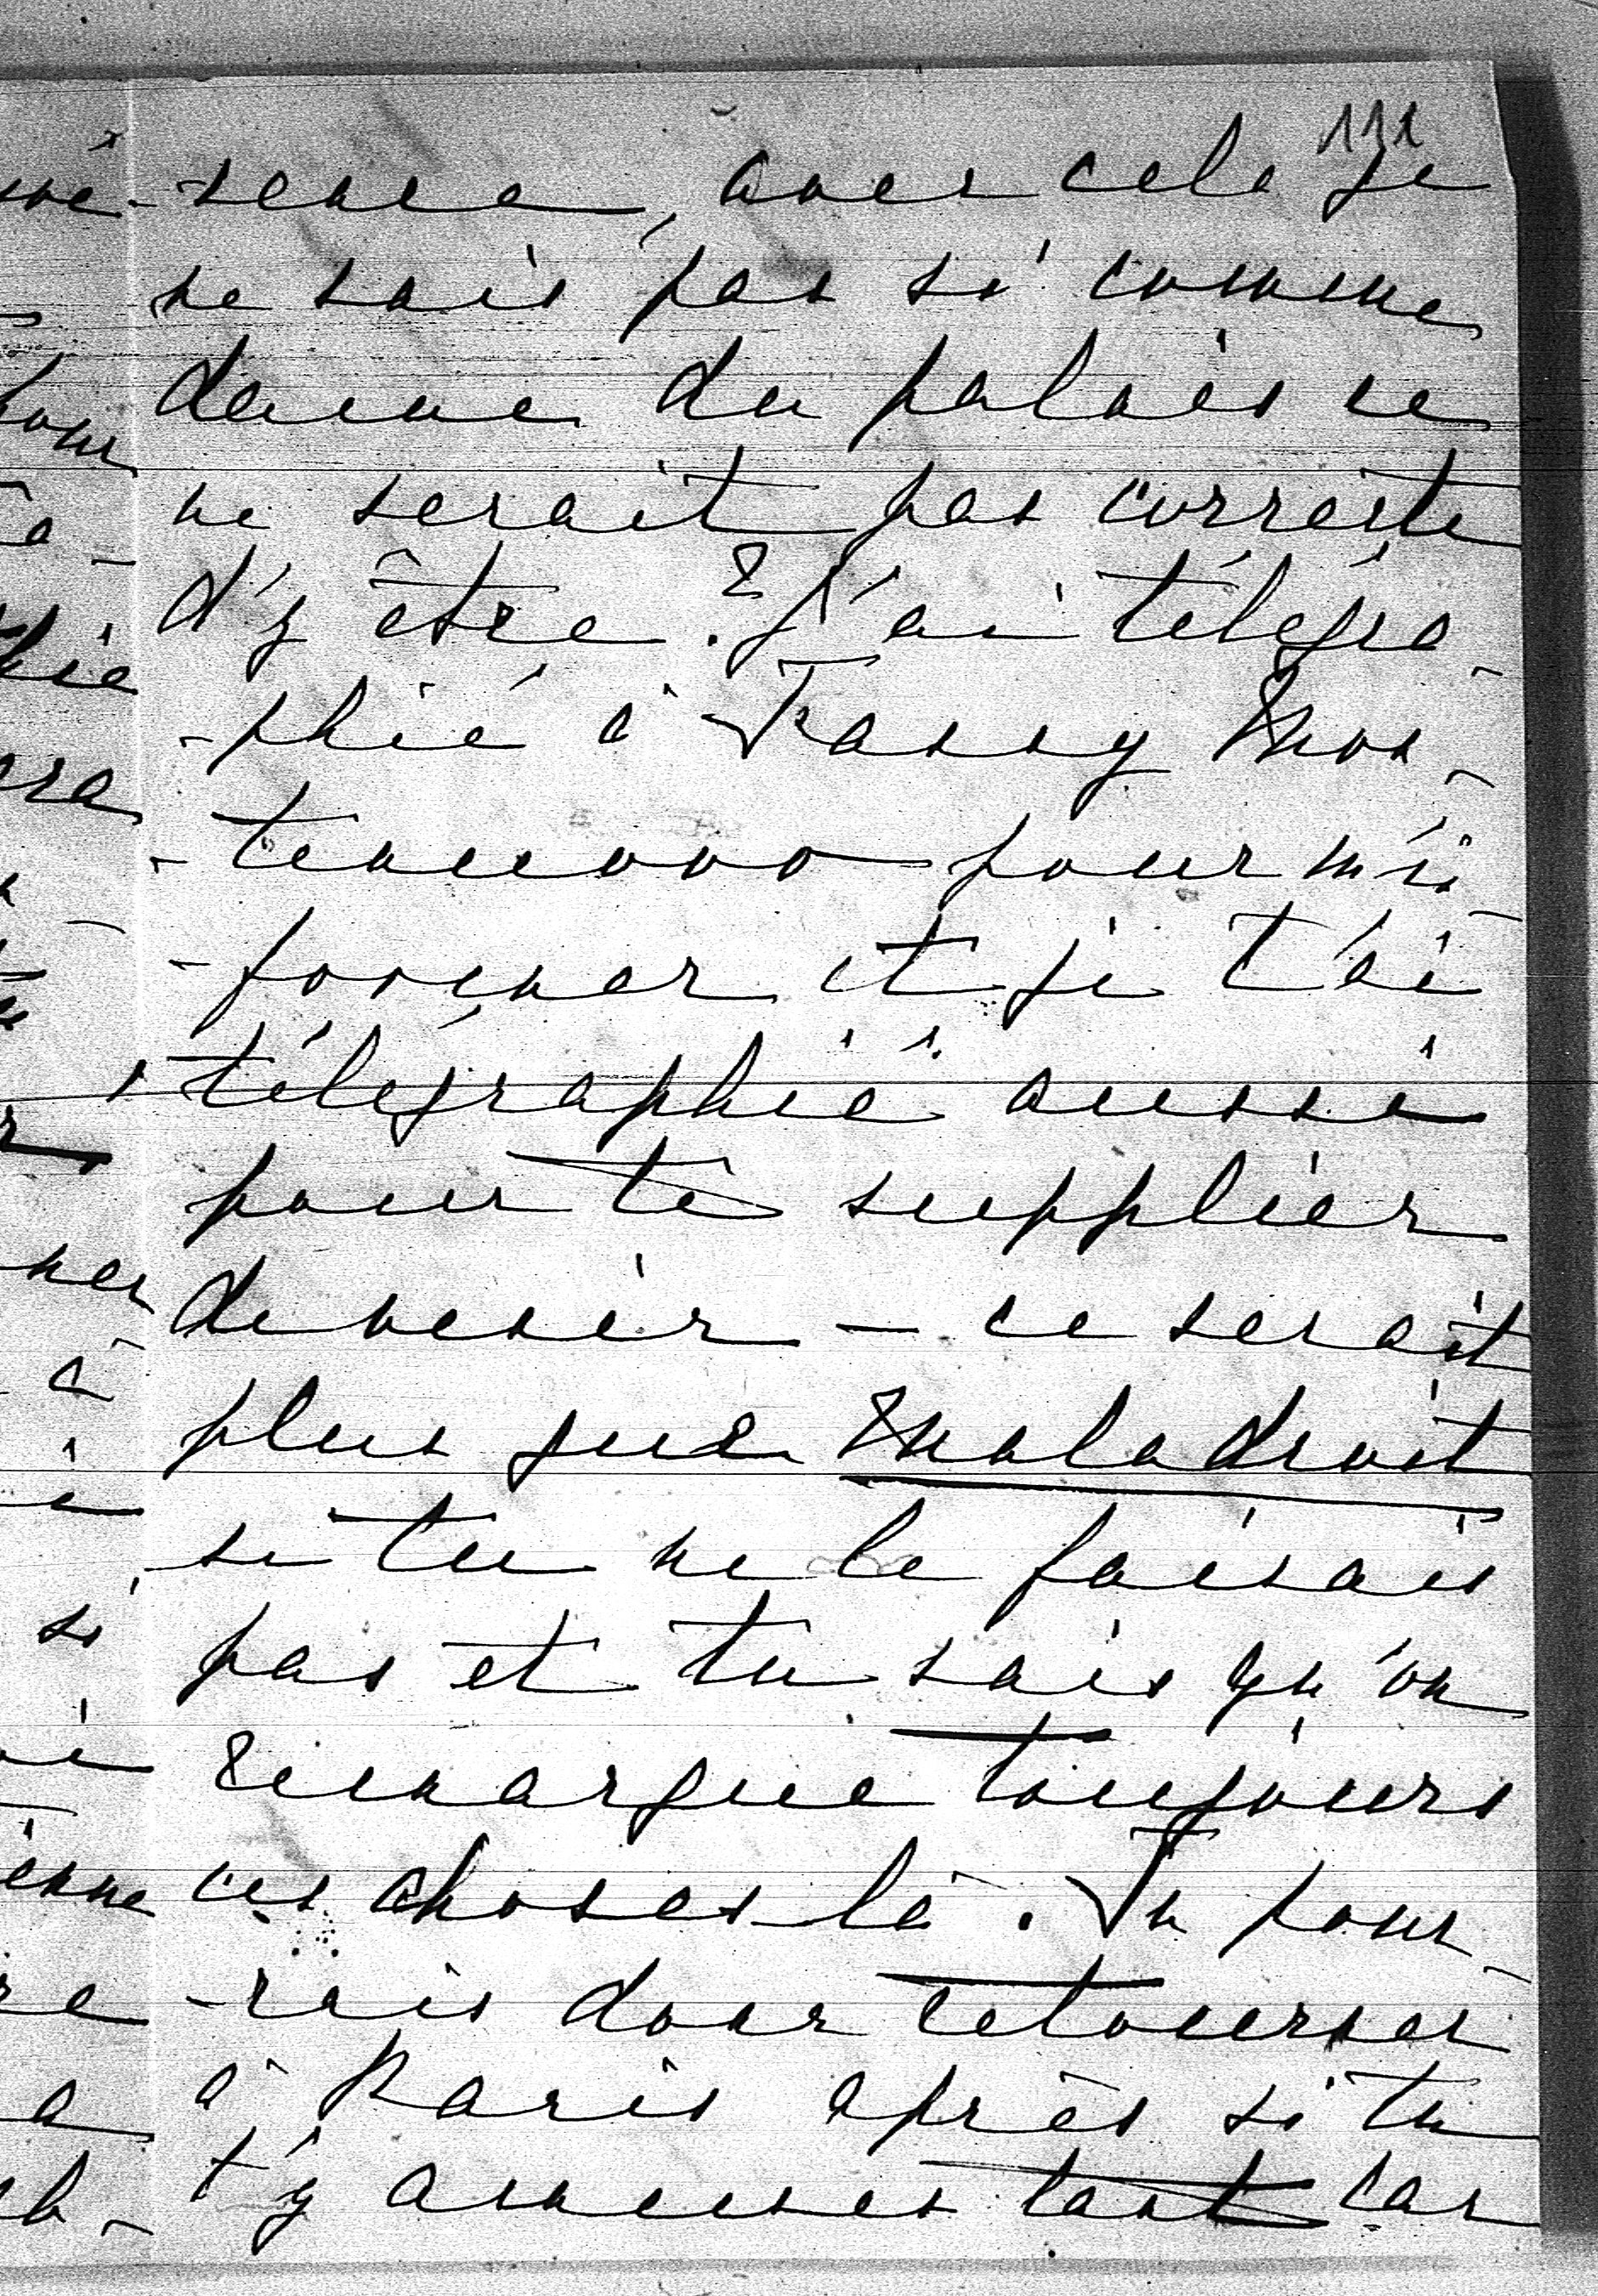 111
-sence, avec cela je
ne sais pas si comme
dame du palais ce
ne serait pas correcte
d'y être? J'ai télégra-
-phié à Fanny
pour m'in-
-former et je t'ai
télégraphié aussi
pour te supplier
de venir — ce serait
plus que maladroit
si tu ne le faisais
pas et tu sais qu'on
remarque toujours
ces choses là. Tu pour-
-rais donc retourner
à Paris après si tu
t'y amuses tant car